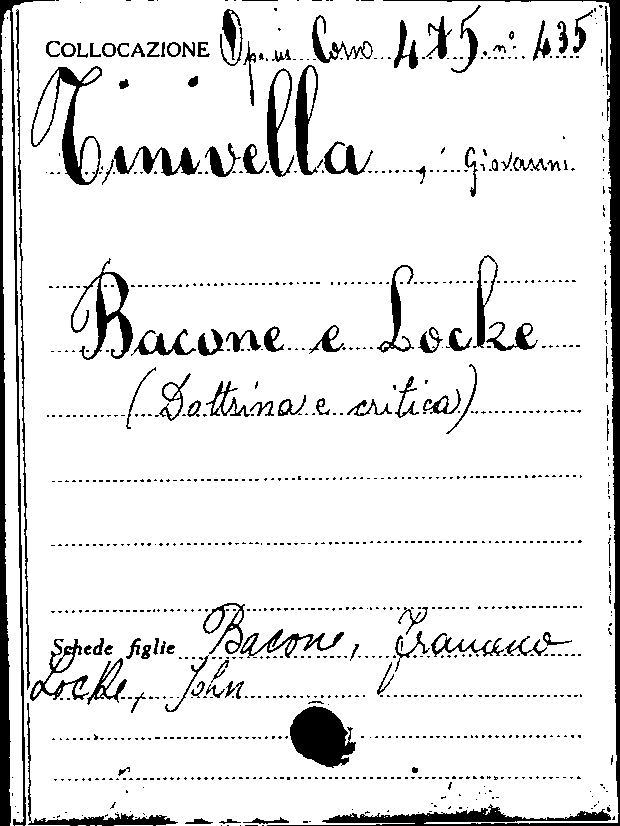 COLLOCAZIONE Op. in Corso 475. n° 435
Tinivella, Giovanni.
Bacone e Locke
(Dottrina e critica)
Schede figlie Bacone, Francesco
Locke, John